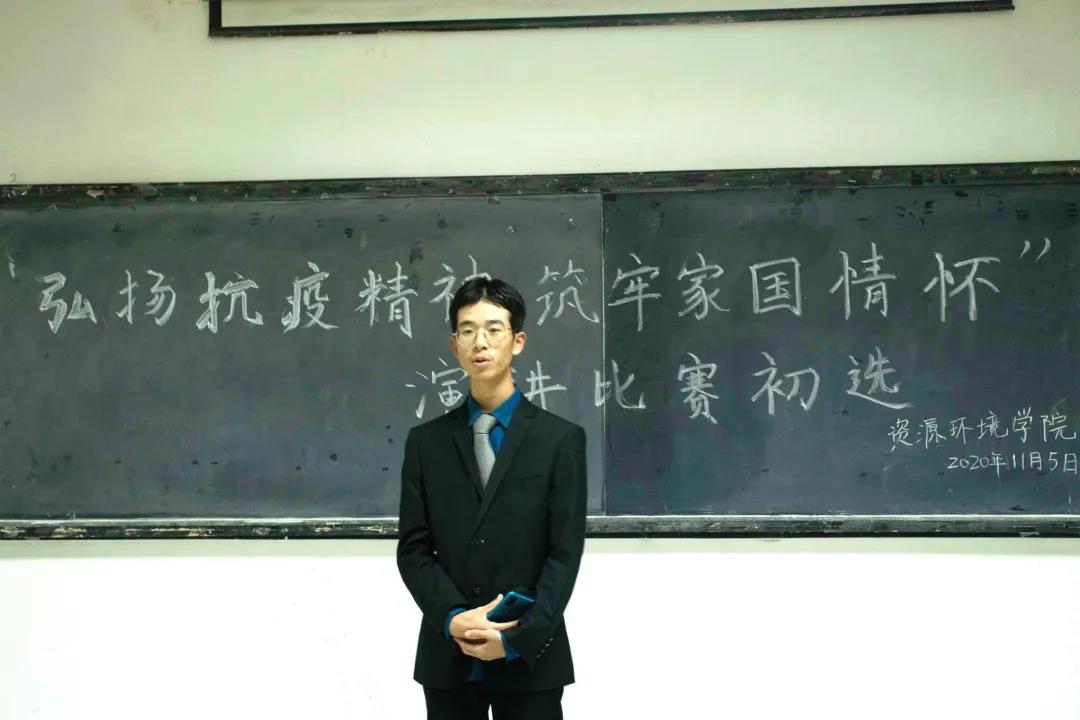 “弘扬抗疫精神 筑牢家国情怀”
演讲比赛初选
资源环境学院
2020年11月5日